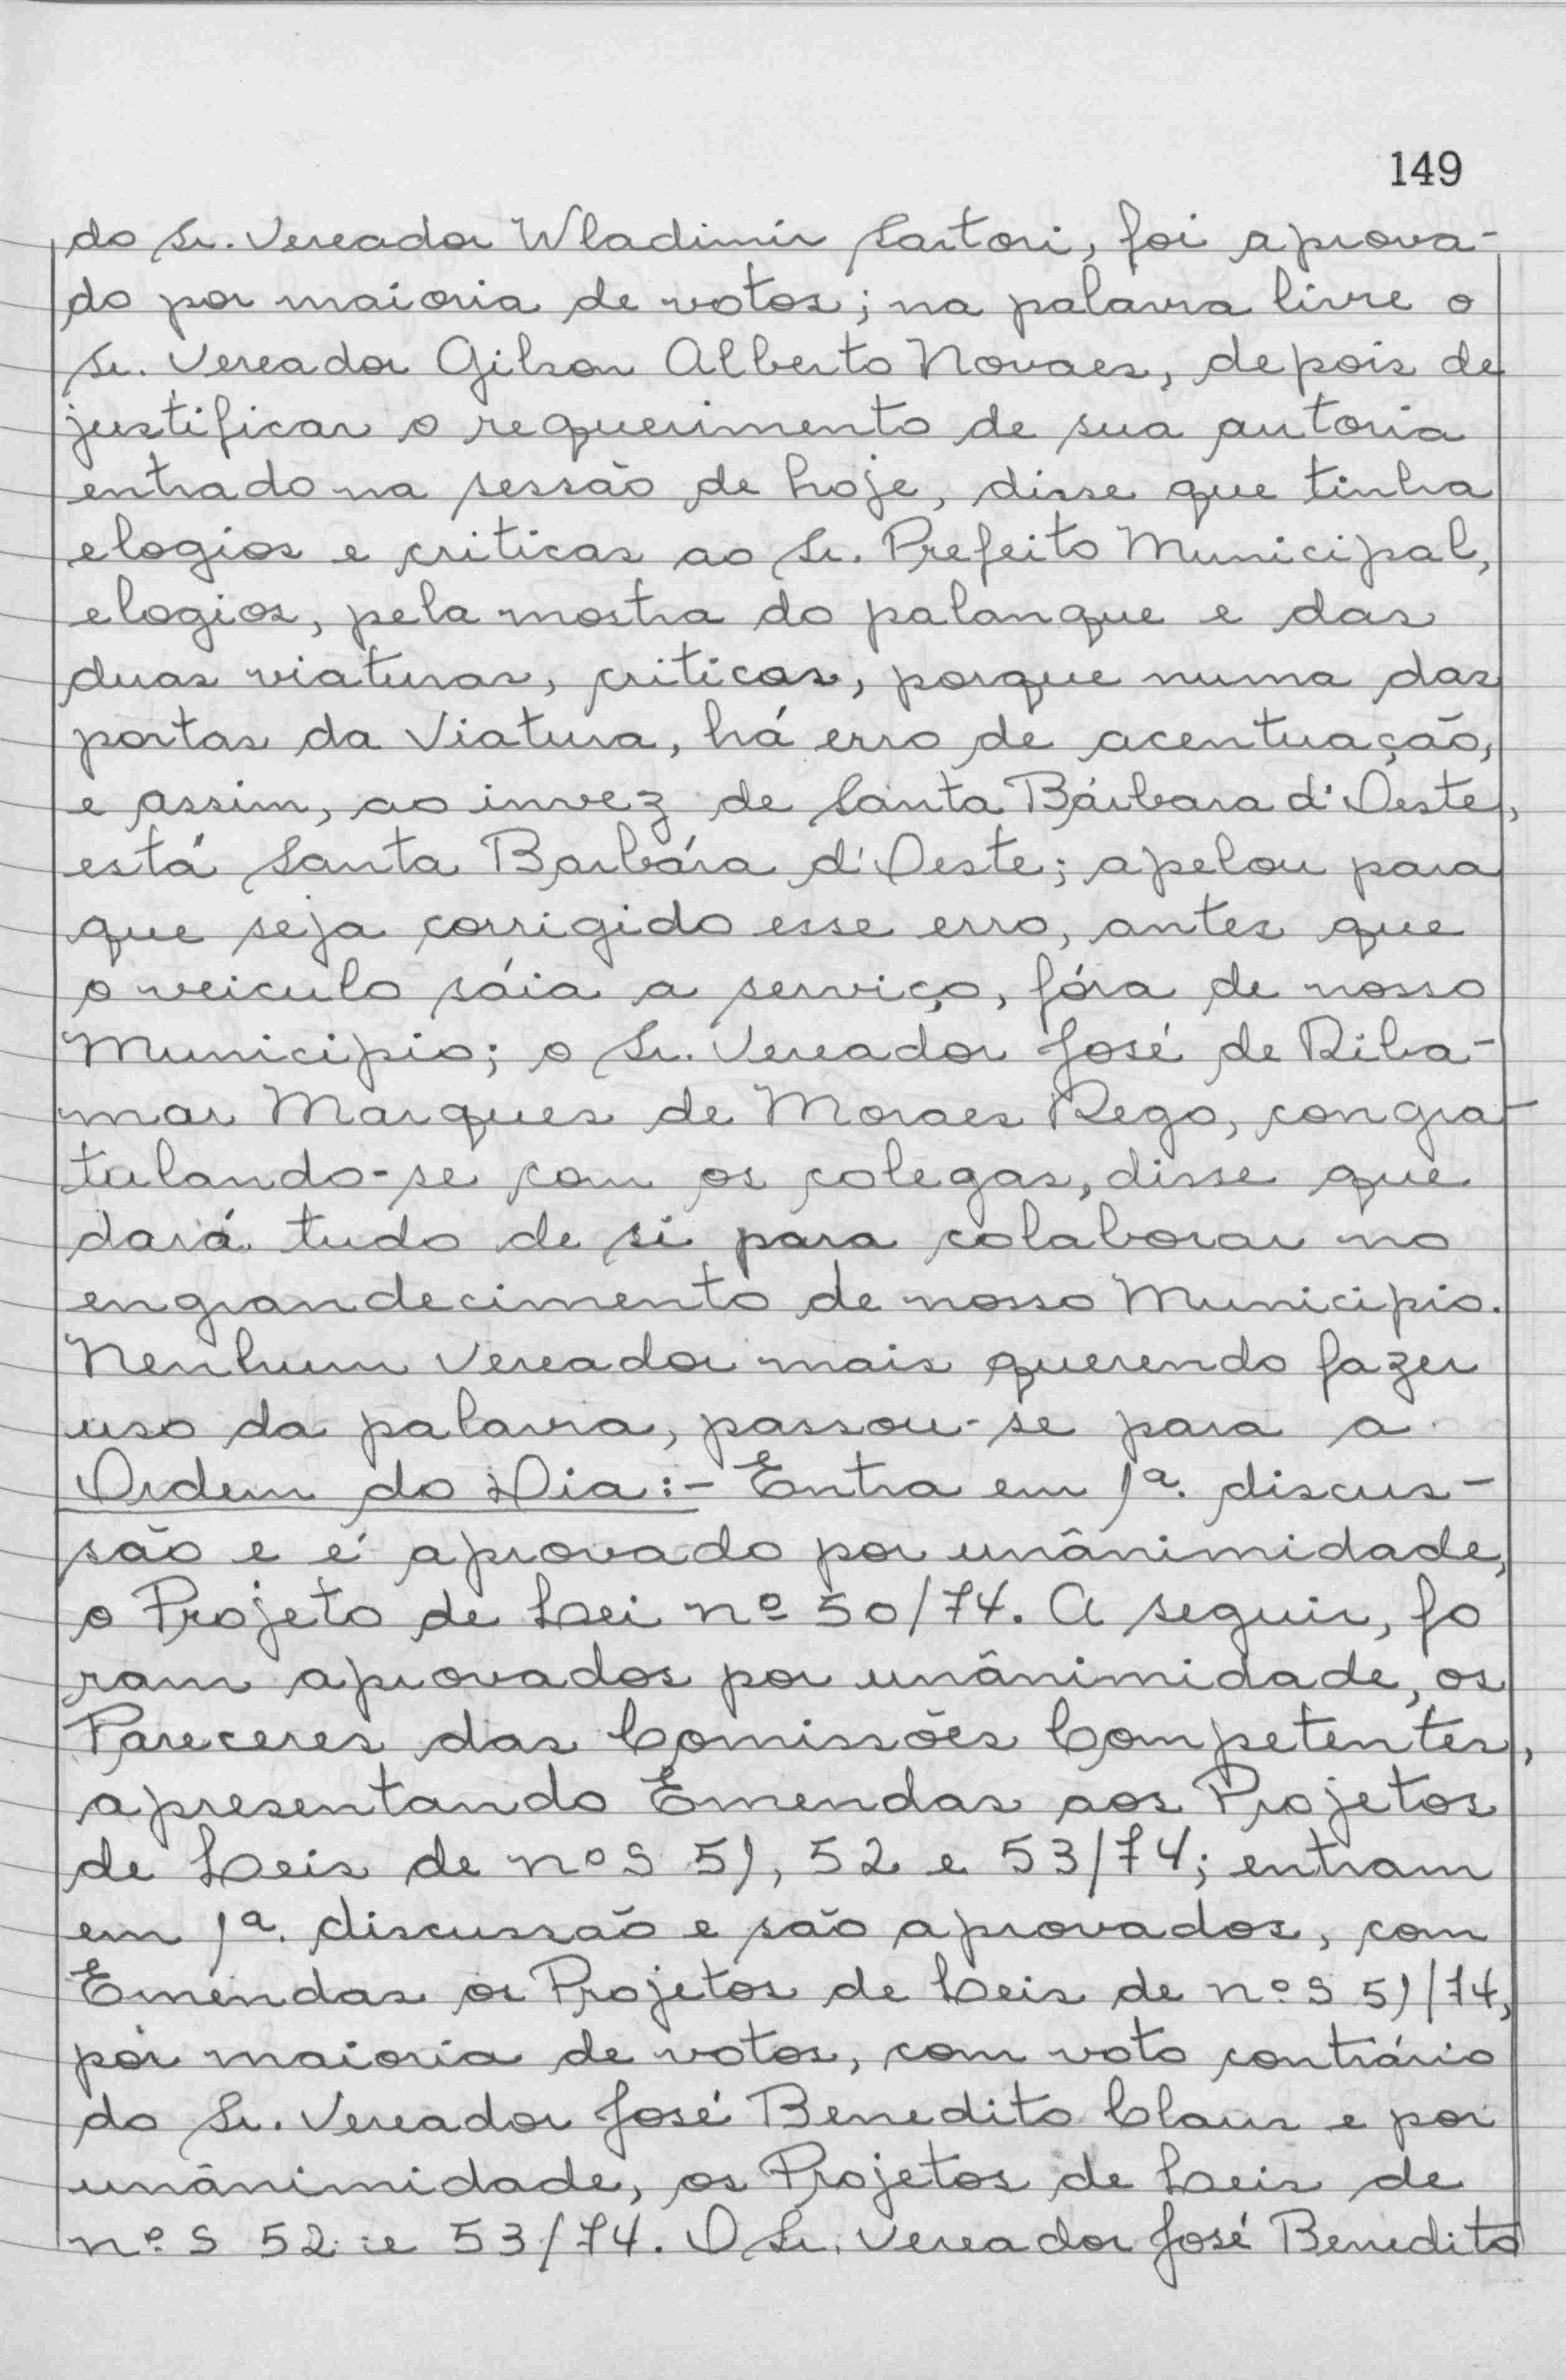 149
do Sr. Vereador Wladimir Sartori, foi aprova-
do por maioria de votos; na palavra livre o
Sr. Vereador Gilson Alberto Novaes, depois de
justificar o requerimento de sua autoria
entrado na sessão de hoje, disse que tinha
elogios e criticas ao Sr. Prefeito Municipal,
elogios, pela mostra do palanque e das
duas viaturas, criticas, porque numa das
portas da Viatura, há erro de acentuação,
e assim, ao invez de Santa Bárbara d'Oeste,
está Santa Barbára d'Oeste; apelou para
que seja corrigido esse erro, antes que
o veiculo sáia a serviço, fóra de nosso
Municipio; o Sr. Vereador José de Riba-
mar Marques de Moraes Rego, congra-
tulando-se com os colegas, disse que
dará tudo de si para colaborar no
engrandecimento de nosso Municipio.
Nenhum Vereador mais querendo fazer
uso da palavra, passou-se para a
Ordem do Dia:- Entra em 1ª. discus-
são e é aprovado por unânimidade,
o Projeto de Lei nº 50/74. A seguir, fo
ram aprovados por unânimidade, os
Pareceres das Comissões Competentes,
apresentando Emendas aos Projetos
de Leis de nºs 51, 52 e 53/74; entram
em 1ª. discussão e são aprovados, com
Emendas os Projetos de Leis de nºs 51/74,
por maioria de votos, com voto contrário
do Sr. Vereador José Benedito Claus e por
unânimidade, os Projetos de Leis de
nºs 52 e 53/74. O Sr. Vereador José Benedito